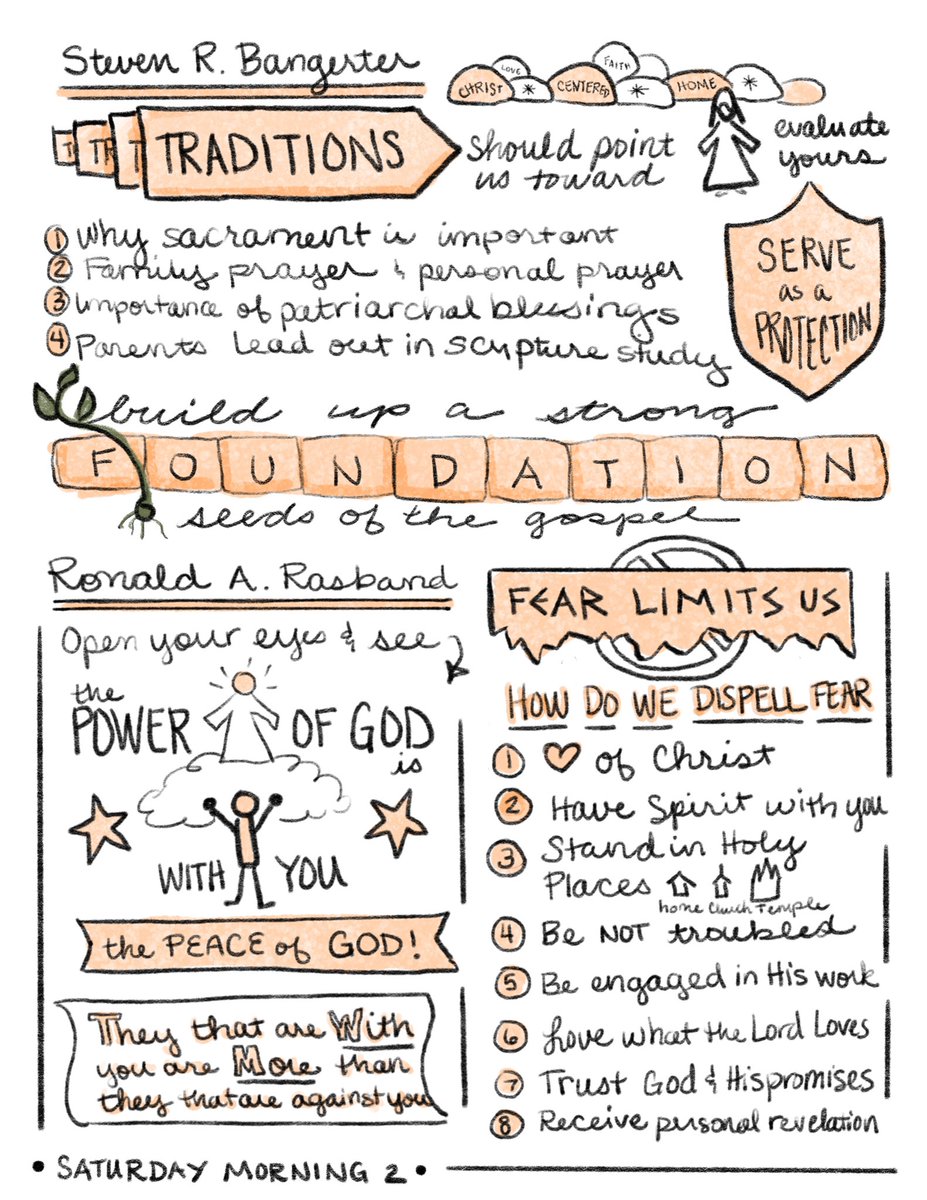 Steven R. Bangerter
LOVE
FAITH
CHRIST * CENTERED * HOME *
T TR T TRADITIONS
Should point
us toward
evaluate
yours
① Why sacrament is important
② Family prayer & personal prayer
③ Importance of patriarchal blessings
④ Parents lead out in scripture study
SERVE
as a
PROTECTION
build up a strong
FOUNDATION
seeds of the gospel
Ronald A. Rasband
Open your eyes & see
the
POWER OF GOD
is
WITH YOU
the PEACE of GOD!
They that are With
you are More than
they that are against you
FEAR LIMITS US
HOW DO WE DISPELL FEAR
① ♥ of Christ
② Have Spirit with you
③ Stand in Holy
Places
home Church Temple
④ Be NOT troubled
⑤ Be engaged in His work
⑥ Love what the Lord Loves
⑦ Trust God & His promises
⑧ Receive personal revelation
• SATURDAY MORNING 2 •